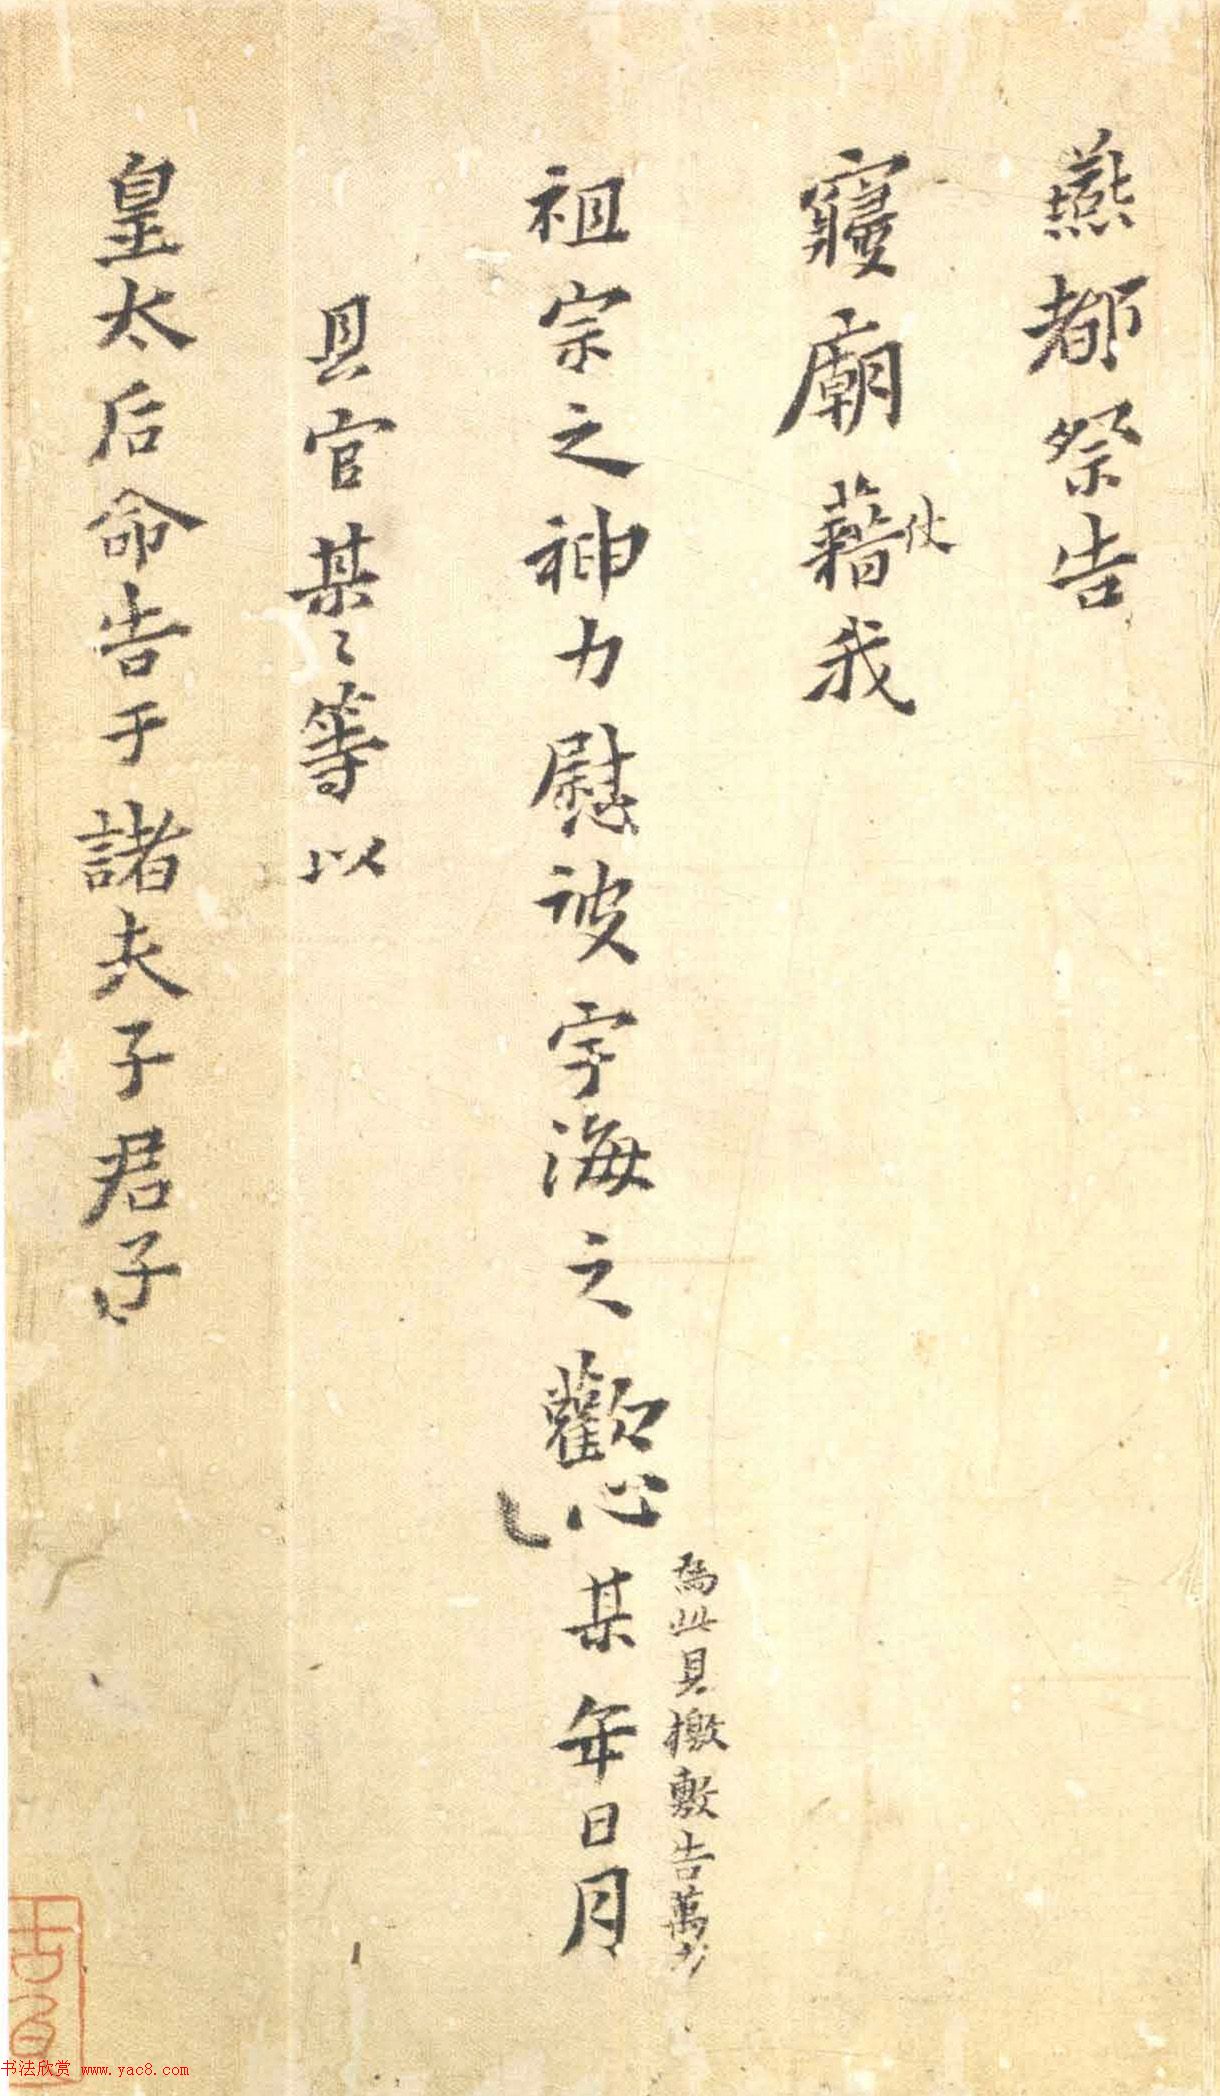 燕都祭告
寢廟藉仗我
祖宗之神力慰彼宇海之歡心某年日月
為此具檄敷告萬方
具官某〻等以
皇太后命告于諸夫子君子
书法欣赏 www.yac8.com